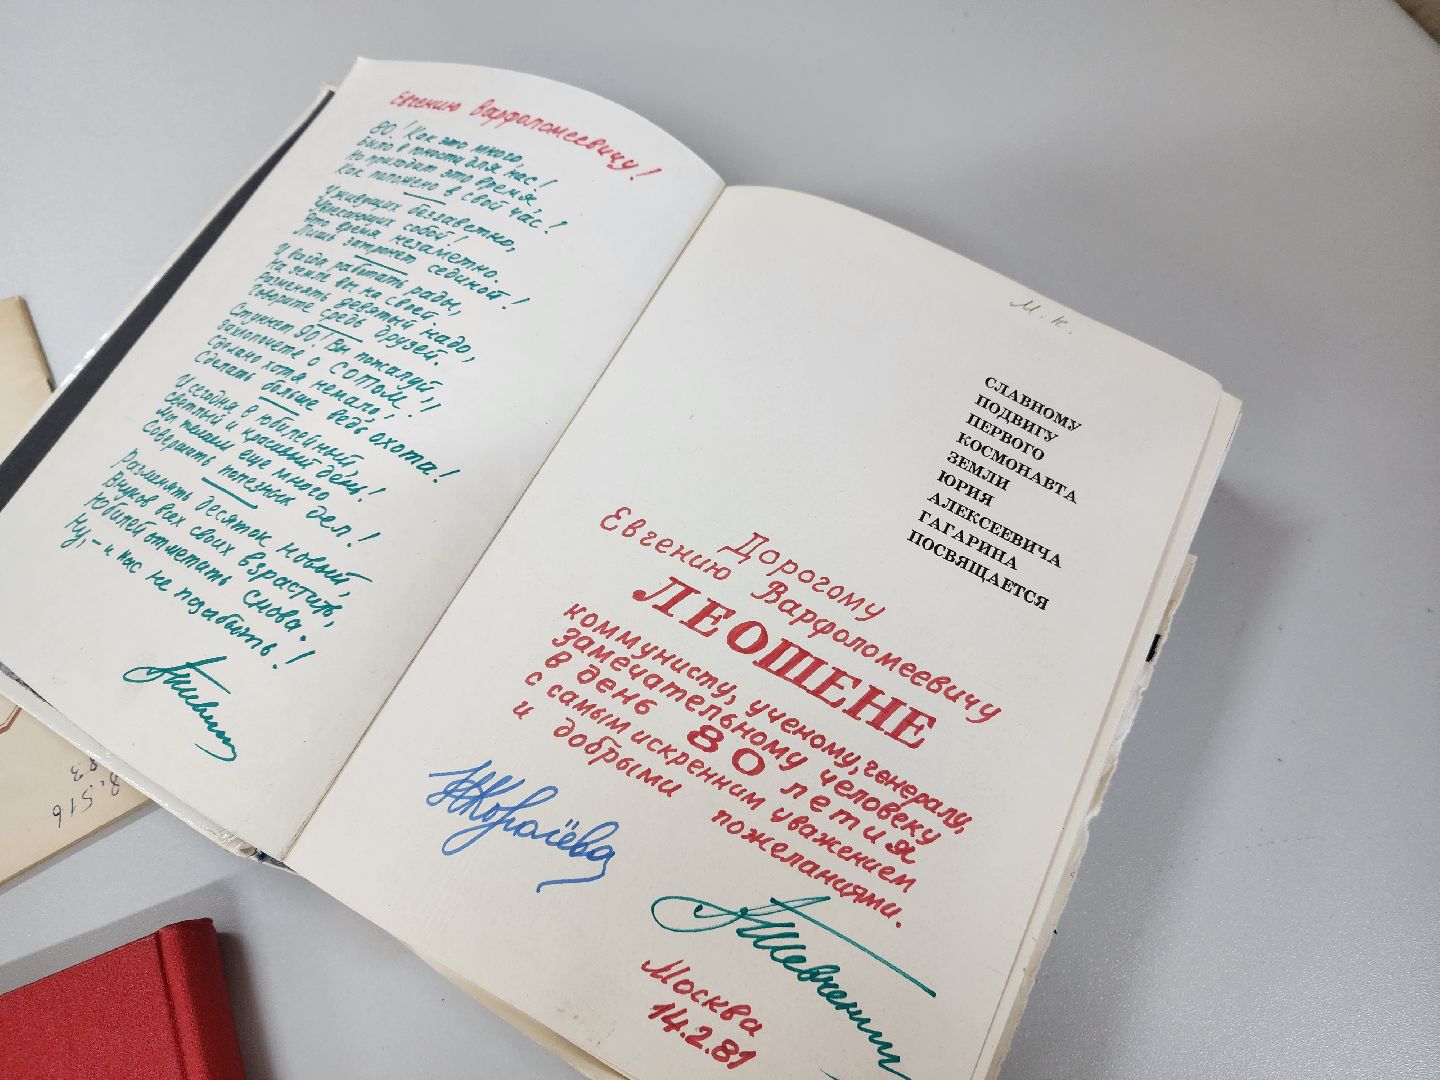 Евгению Варфоломеевичу!
80! Как это много,
Было в юности для нас!
Но приходит это время,
Как положено в свой час!
У живущих беззаветно,
Увлекающих собой!
Это время незаметно.
Лишь затронет сединой!
И всегда работать рады,
На земле вы на своей.
Разменять девятый надо,
Говорите средь друзей.
Стукнет 90! Вы пожалуй,
Захлопочете о сотом!
Сделано хотя немало,
Сделать больше ведь охота!
И сегодня в юбилейный,
Светлый и красивый день!
Мы желаем еще много
Совершить полезных дел!
Разменять десяток новый,
Внуков всех своих взрастить,
Юбилей отметить снова.
Ну, – и нас не позабыть!
М. К.
СЛАВНОМУ
ПОДВИГУ
ПЕРВОГО
КОСМОНАВТА
ЗЕМЛИ
ЮРИЯ
АЛЕКСЕЕВИЧА
ГАГАРИНА
ПОСВЯЩАЕТСЯ
Дорогому
Евгению Варфоломеевичу
ЛЕОШЕНЕ
коммунисту, ученому, генералу,
замечательному человеку
в день 80 летия
с самым искренним уважением
и добрыми пожеланиями.
НКоролёва
Москва
14.2.81
8.516